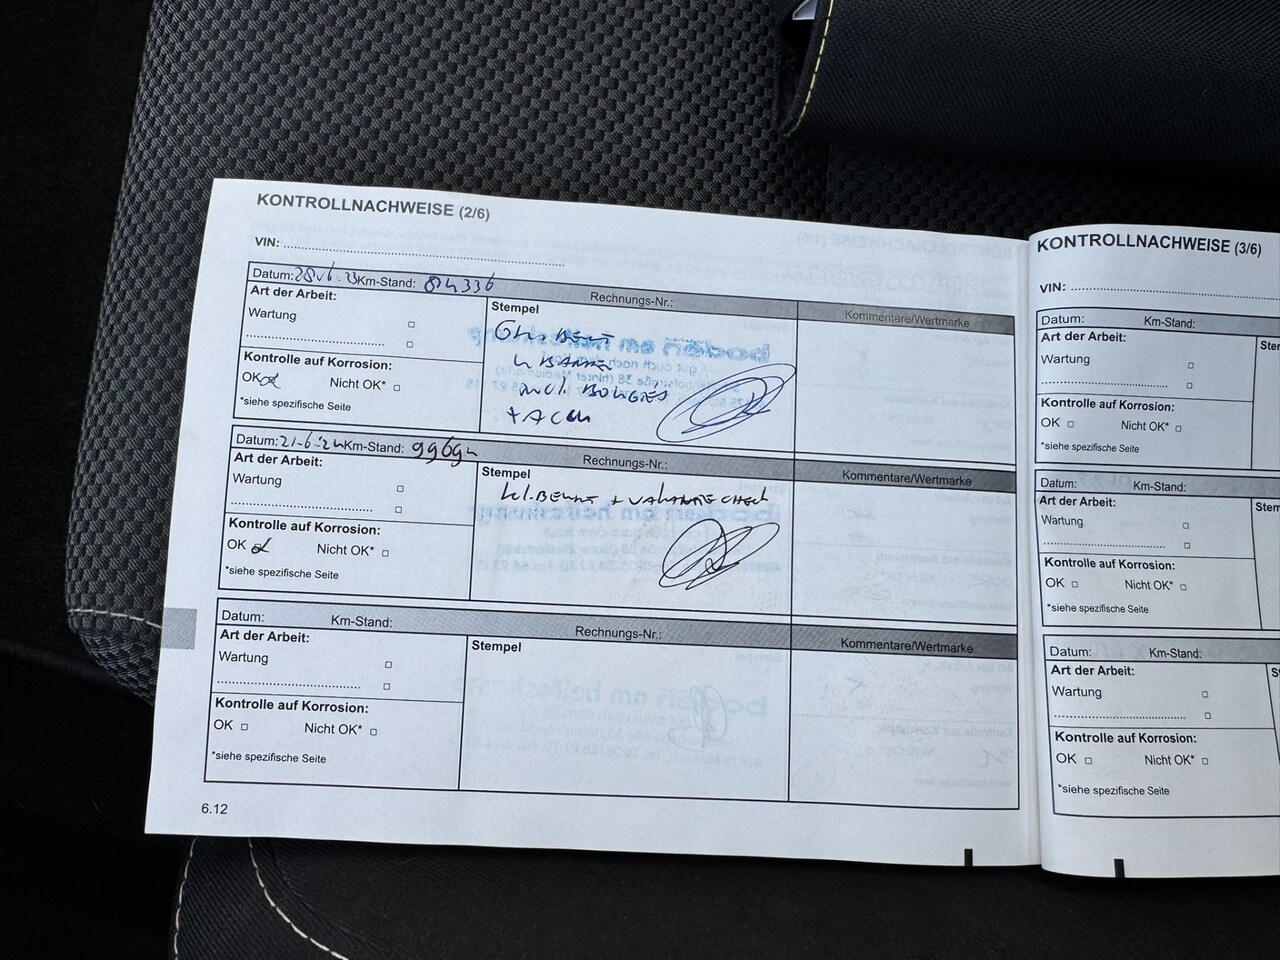 KONTROLLNACHWEISE (2/6)
VIN:
Datum: Km-Stand: 84336 Rechnungs-Nr.:
Art der Arbeit:
Wartung
Kontrolle auf Korrosion:
OK Nicht OK*
*siehe spezifische Seite
Stempel
+
Kommentare/Wertmarke
Datum: 21.6.24 Km-Stand: 99694 Rechnungs-Nr.:
Art der Arbeit:
Wartung
Kontrolle auf Korrosion:
OK Nicht OK*
*siehe spezifische Seite
Stempel
+ CHECK
Kommentare/Wertmarke
Datum: Km-Stand: Rechnungs-Nr.:
Art der Arbeit:
Wartung
Kontrolle auf Korrosion:
OK Nicht OK*
*siehe spezifische Seite
Stempel
Kommentare/Wertmarke
6.12
KONTROLLNACHWEISE (3/6)
VIN:
Datum: Km-Stand:
Art der Arbeit:
Wartung
Kontrolle auf Korrosion:
OK Nicht OK*
*siehe spezifische Seite
Ster
Datum: Km-Stand:
Art der Arbeit:
Wartung
Kontrolle auf Korrosion:
OK Nicht OK*
*siehe spezifische Seite
Stem
Datum: Km-Stand:
Art der Arbeit:
Wartung
Kontrolle auf Korrosion:
OK Nicht OK*
*siehe spezifische Seite